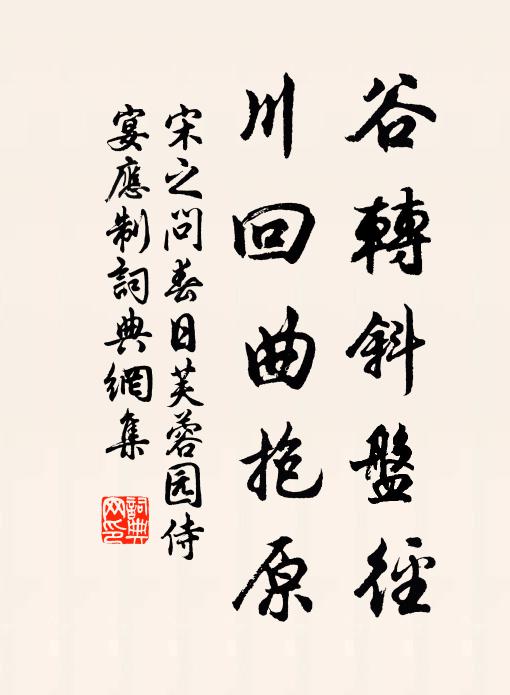 谷轉斜盤徑
川回曲抱原
宋之问春日芙蓉园侍
宴應制詞典網集
詞典
网印